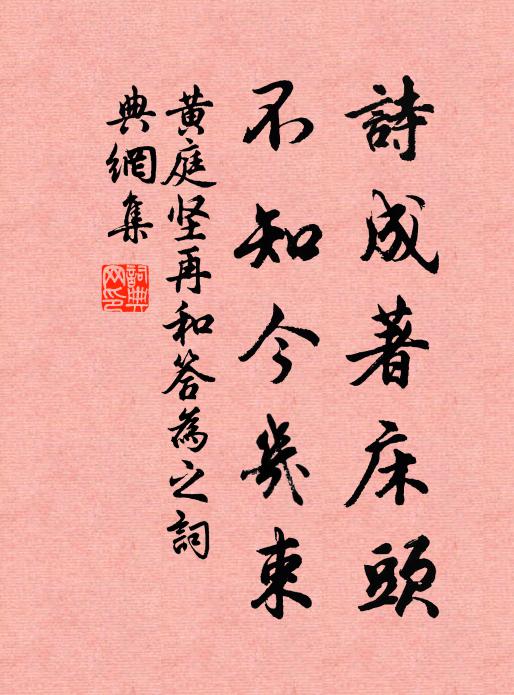 詩成著床頭
不知今幾束
黄庭坚再和答為之詞
典網集
詞典网印